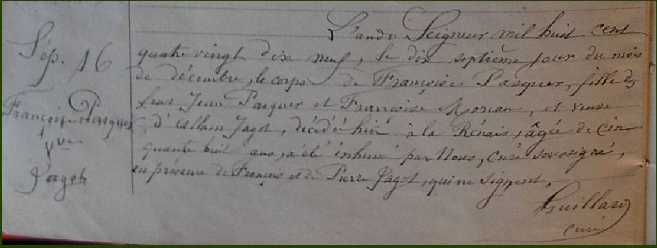 L'an du Seigneur mil huit cent
quatre vingt dix neuf, le dix septième jour du mois
de décembre, le corps de Françoise Pasquer, fille de
feus Jean Pasquer et Françoise Morvan, et veuve
d'Allain Jagot, décédée hier à la Rénais, âgée de cin
quante huit ans, a été inhumé par Nous, curé soussigné,
en présence de François et de Pierre Jagot, qui ne signent,
Guillard
curé
Sep. 16
Françoise Pasquer
Vve
Jagot